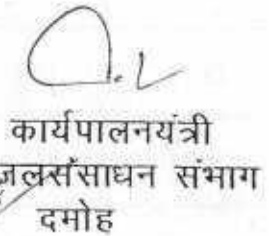 कार्यपालनयंत्री
जलसंसाधन संभाग
दमोह